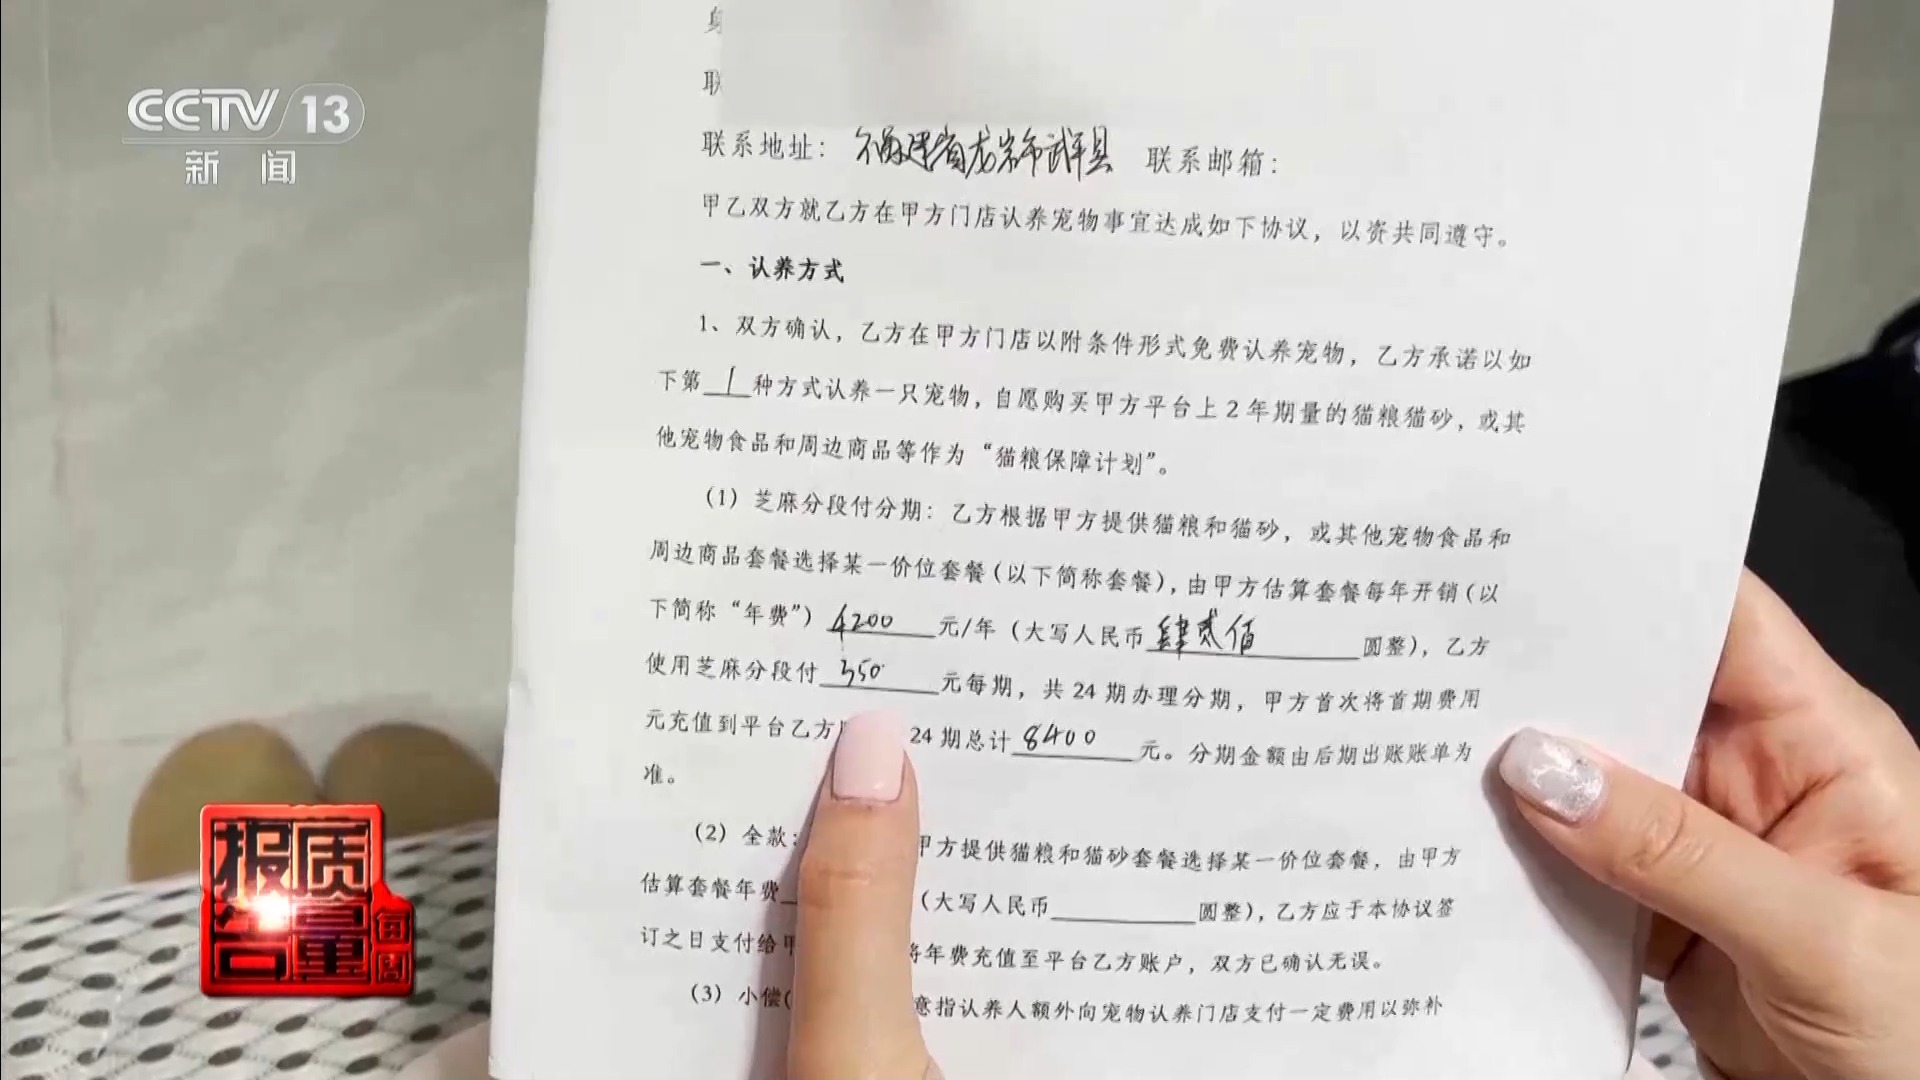 CCTV 13
新闻
联系地址：福建省龙岩市武平县 联系邮箱：
甲乙双方就乙方在甲方门店认养宠物事宜达成如下协议，以资共同遵守。
一、认养方式
1、双方确认，乙方在甲方门店以附条件形式免费认养宠物，乙方承诺以如
下第1种方式认养一只宠物，自愿购买甲方平台上2年期量的猫粮猫砂，或其
他宠物食品和周边商品等作为“猫粮保障计划”。
(1) 芝麻分段付分期：乙方根据甲方提供猫粮和猫砂，或其他宠物食品和
周边商品套餐选择某一价位套餐(以下简称套餐)，由甲方估算套餐每年开销(以
下简称“年费”) 4200 元/年（大写人民币肆贰佰圆整)，乙方
使用芝麻分段付 350 元每期，共24期办理分期，甲方首次将首期费用
元充值到平台乙方 24期总计 8400 元。分期金额由后期出账账单为
准。
(2) 全款： 甲方提供猫粮和猫砂套餐选择某一价位套餐，由甲方
估算套餐年费 (大写人民币 圆整)，乙方应于本协议签
订之日支付给甲 将年费充值至平台乙方账户，双方已确认无误。
(3) 小偿( 意指认养人额外向宠物认养门店支付一定费用以弥补
每周
质量报告